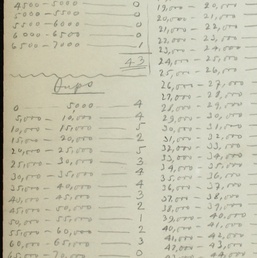 4500 - 5000 — 0
5000 - 5500 — 0
5500 - 6000 — 0
6000 - 6500 — 0
6500 - 7000 — 1
43
0 — 5,000 — 4
5,000 — 10,000 — 4
10,000 — 15,000 — 5
15,000 — 20,000 — 2
20,000 — 25,000 — 5
25,000 — 30,000 — 3
30,000 — 35,000 — 4
35,000 — 40,000 — 4
40,000 — 45,000 — 3
45,000 — 50,000 — 2
50,000 — 55,000 — 1
55,000 — 60,000 — 2
60,000 — 65,000 — 3
65,000 — 70,000 — 0
19,000 - 20,000
20,000 - 21,000
21,000 - 22,000
22,000 - 23,000
23,000 - 24,000
24,000 - 25,000
25,000 - 26,000
26,000 - 27,000
27,000 - 28,000
28,000 - 29,000
29,000 - 30,000
30,000 - 31,000
31,000 - 32,000
32,000 - 33,000
33,000 - 34,000
34,000 - 35,000
35,000 - 36,000
36,000 - 37,000
37,000 - 38,000
38,000 - 39,000
39,000 - 40,000
40,000 - 41,000
41,000 - 42,000
42,000 - 43,000
43,000 - 44,000